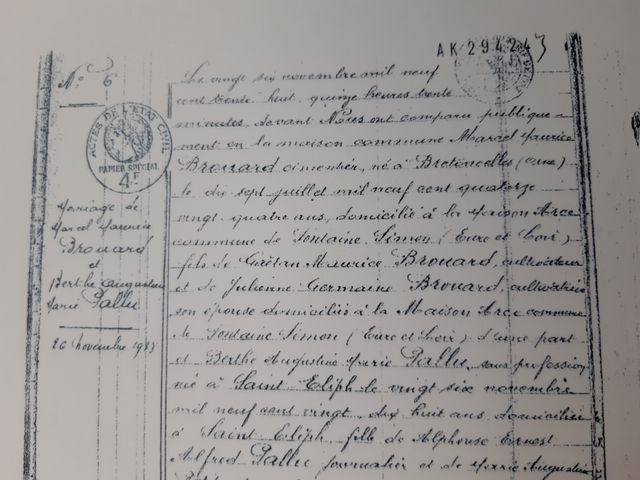 AK 294243
N° 6
ACTES DE L'ETAT CIVIL
PAPIER SPECIAL
4F
Mariage de
Marcel Maurice
Brouard
et
Berthe Augustine
Marie Pallu
26 novembre 19
Le vingt six novembre mil neuf
cent trente huit, quinze heures trente
minutes, devant Nous ont comparu publique-
ment en la maison commune Marcel Maurice
Brouard cimentier, né à Bretoncelles (Orne)
le dix sept juillet mil neuf cent quatorze
vingt quatre ans, domicilié à la Maison Arce
commune de Fontaine Simon (Eure et Loir)
fils de Gaëtan Maurice Brouard, cultivateur
et de Julienne Germaine Brouard, cultivatrice
son épouse domiciliés à la Maison Arce commune
de Fontaine Simon (Eure et Loir) d'une part
et Berthe Augustine Marie Pallu, sans profession
née à Saint Eliph le vingt six novembre
mil neuf cent vingt, dix huit ans, domiciliée
à Saint Eliph, fille de Alphonse Ernest
Alfred Pallu journalier et de Marie Augustine